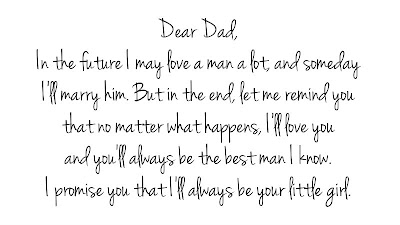 Dear Dad,
In the future I may love a man a lot, and someday
I'll marry him. But in the end, let me remind you
that no matter what happens, I'll love you
and you'll always be the best man I know.
I promise you that I'll always be your little girl.